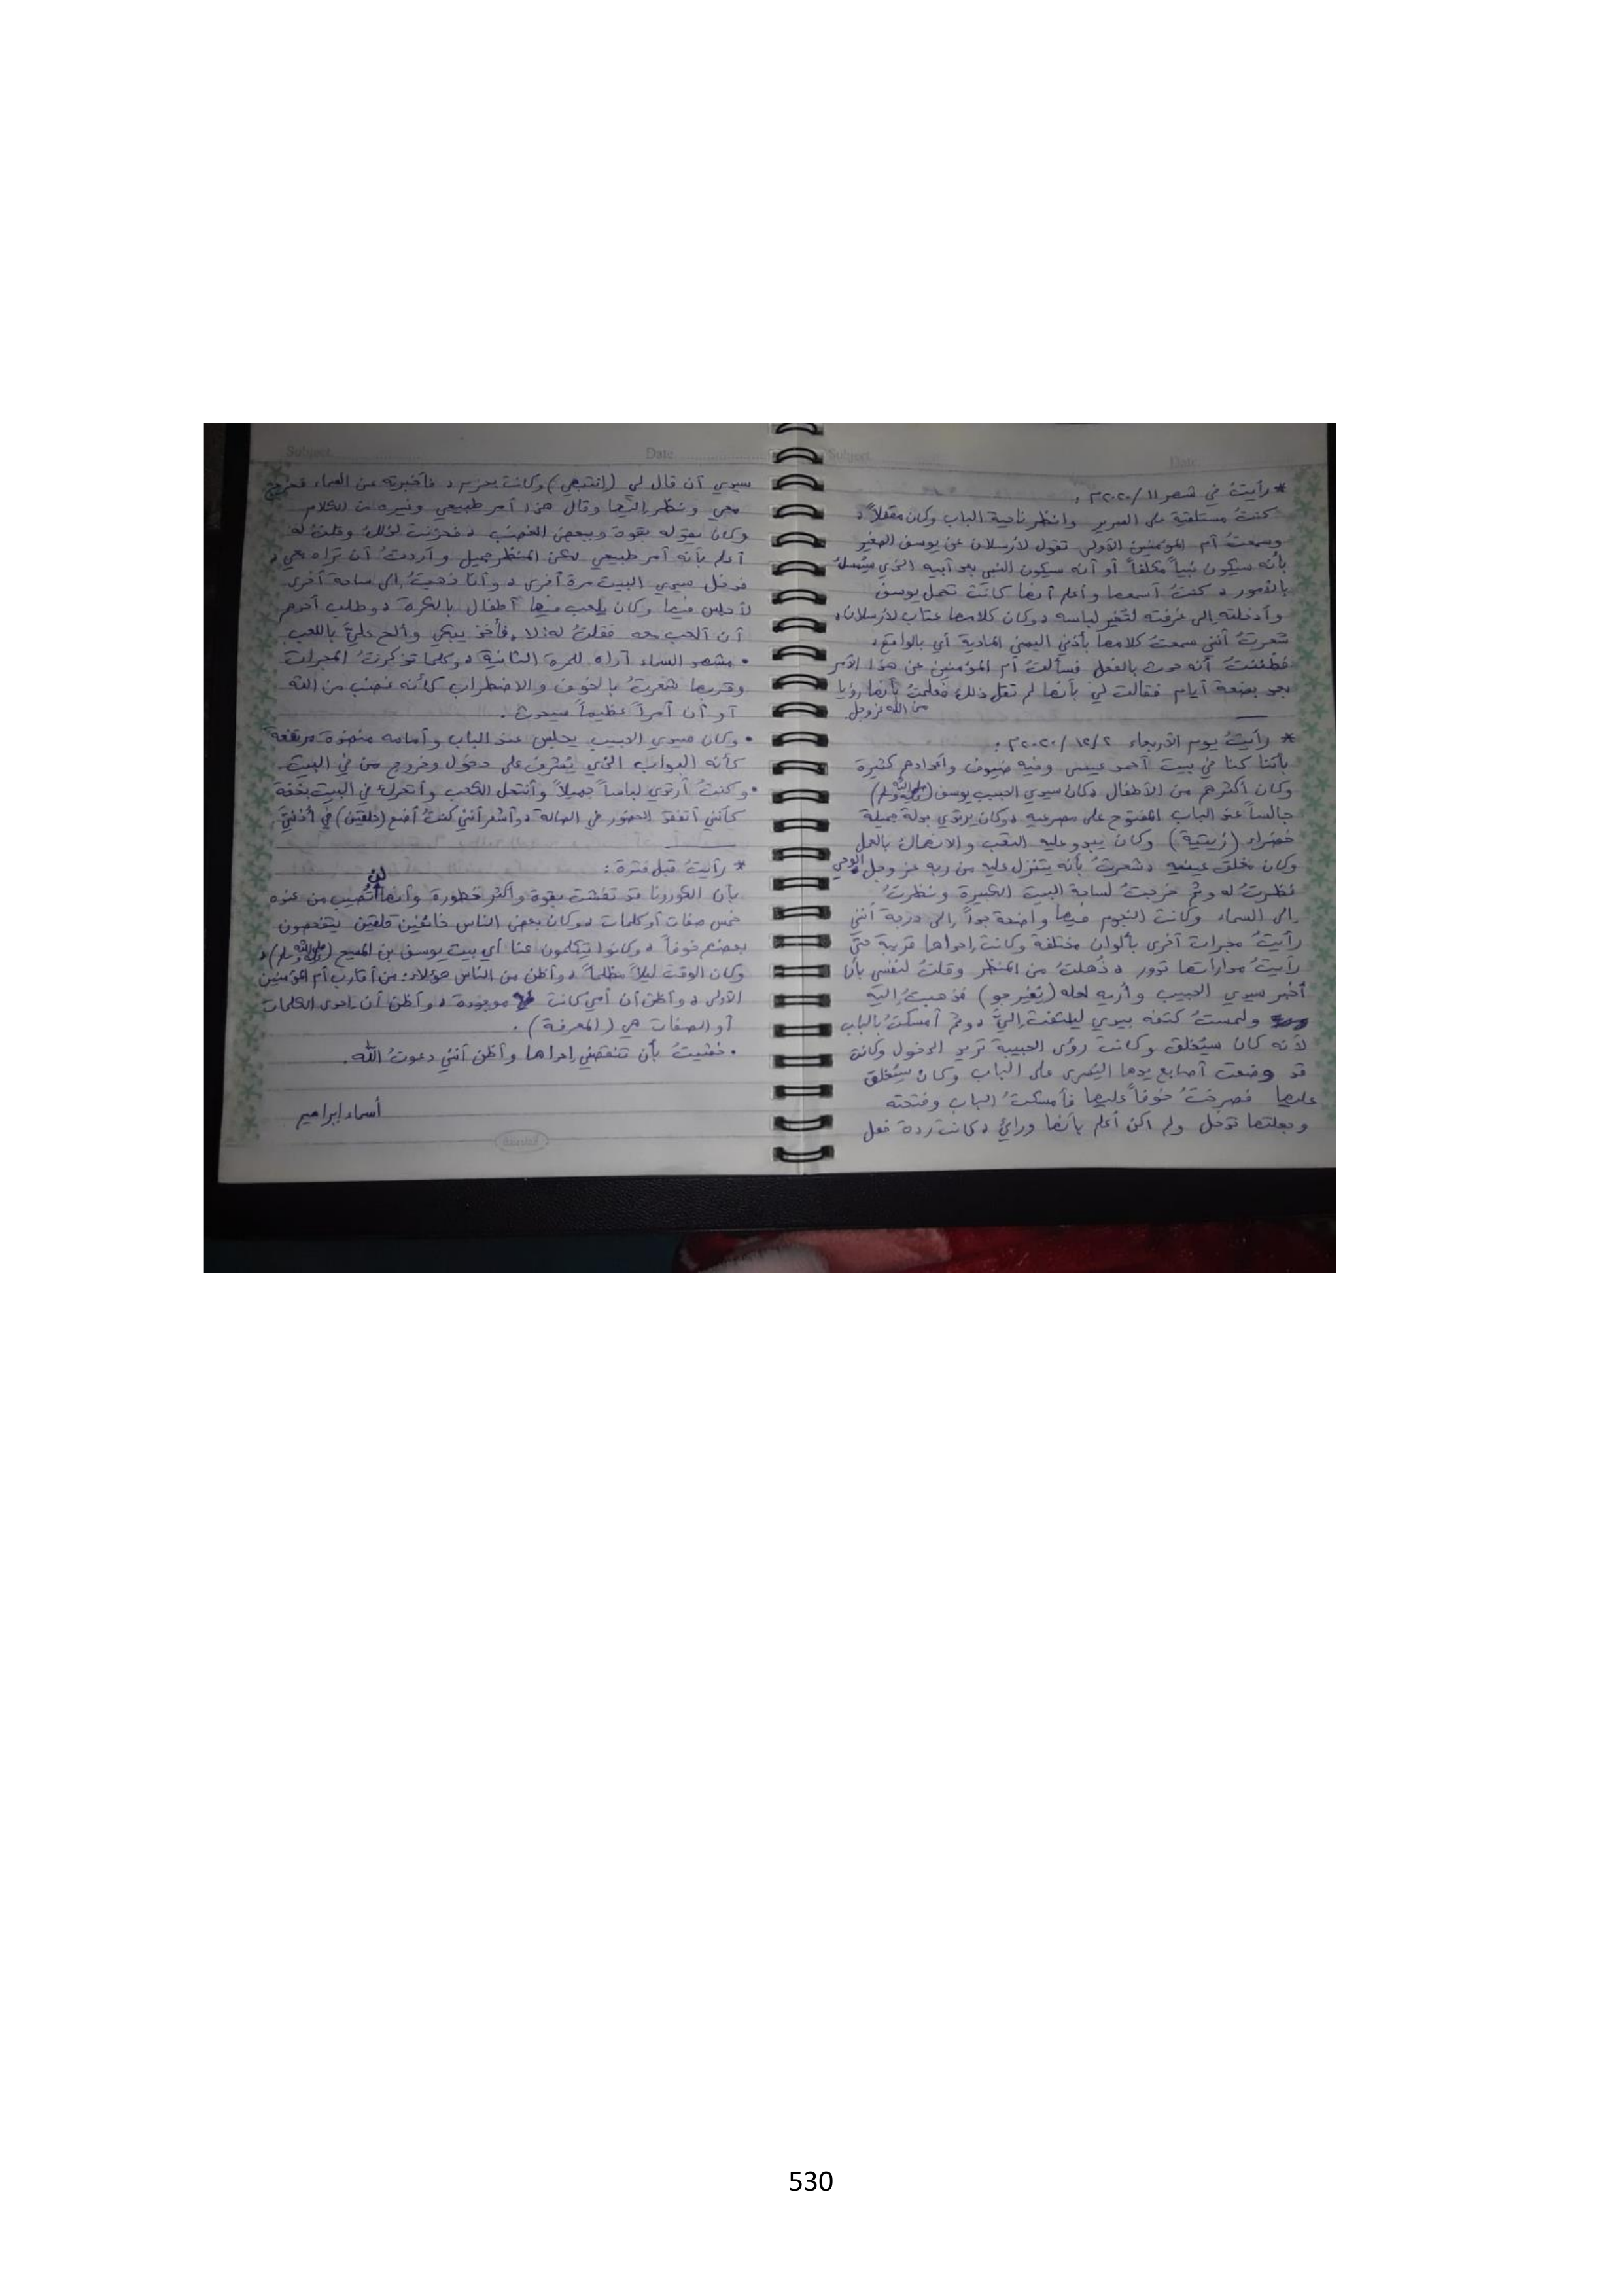 Subject
Date
* رأيتُ في شهر ١١/ ٢٠٢٠م :
كنتُ مستلقية على السرير وانظر ناحية الباب وكان مقفلاً ،
وسمعتُ أم المؤمنين الأولى تقول لأرسلان عن يوسف الصغير
بأنه سيكون نبياً مكلفاً أو أنه سيكون النبي بعد أبيه الذي
بالأمور ، كنتُ أسمعها وأعلم أنها كانت تحمل يوسف
وأدخلته إلى غرفته لتغير لباسه ، وكان كلامها عتاب لأرسلان ،
شعرتُ أنني سمعتُ كلامها بأذني اليمنى المادية أي بالواقع ،
فظننتُ أنه حدث بالفعل فسألتُ أم المؤمنين عن هذا الأمر
بعد بضعة أيام فقالت لي بأنها لم تقل ذلك فعلمتُ بأنها رؤيا
من الله عز وجل .
* رأيتُ يوم الأربعاء ٢/١٢/ ٢٠٢٠م :
بأننا كنا في بيت أحمد عيسى وفيه ضيوف وأعدادهم كثيرة
وكان أكثرهم من الأطفال ، كان سيدي الحبيب يوسف (صلى الله عليه وسلم)
جالساً عند الباب المفتوح على مصرعيه ، وكان يرتدي بدلة جميلة
خضراء (زيتية) وكان يبدو عليه التعب والانهماك بالعمل
وكان مغلق عينيه ، شعرتُ بأنه يتنزل عليه من ربه عز وجل الوحي
نظرتُ له ثم خرجتُ لساحة البيت الكبيرة ونظرتُ
إلى السماء وكانت النجوم فيها واضحة جداً إلى درجة أنني
رأيتُ مجرات أخرى بألوان مختلفة وكانت إحداها قريبة حتى
رأيتُ مداراتها تدور ، ذُهلتُ من المنظر وقلتُ لنفسي بأن
أخبر سيدي الحبيب وأريه لعله (يغير جو) فذهبتُ إليه
ولمستُ كتفه بيدي ليلتفت إليَّ ، ثم أمسكتُ بالباب
لأنه كان سيُغلق وكانت رؤى الحبيبة تريد الدخول وكانت
قد وضعت أصابع يدها اليسرى على الباب وكان سيُغلق
عليها فصرختُ خوفاً عليها فأمسكتُ الباب وفتحته
وجعلتها تدخل ولم أكن أعلم بأنها ورائي ، كانت ردة فعل
Subject
Date
سيدي أن قال لي (انتبهي) وكانت بحزم ، فأخبرته عن السماء فخرج
معي ونظر إليها وقال هذا أمر طبيعي وغيره من الكلام
وكان يقوله بقوة وببعض الغضب ، فحزنت لذلك وقلتُ له
أعلم بأنه أمر طبيعي لكن المنظر جميل وأردتُ أن تراه معي ،
فدخل سيدي البيت مرة أخرى ، وأنا ذهبتُ إلى ساحة أخرى
لأجلس فيها وكان يلعب فيها أطفال بالكرة ، وطلب أحدهم
أن ألعب معه فقلتُ له: لا ، فأخذ يبكي وألح عليَّ باللعب
• مشهد السماء أراه للمرة الثانية ، وكلما تذكرتُ المجرات
وقربها شعرتُ بالخوف والاضطراب كأنه غضب من الله
أو أن أمراً عظيماً سيحدث .
• وكان سيدي الحبيب يجلس عند الباب وأمامه منضدة مرتفعة
كأنه البواب الذي يُشرف على دخول وخروج من في البيت .
• وكنتُ أرتدي لباساً جميلاً وأنتعل الكعب وأتحرك في البيت بخفة
كأنني أتفقد الحضور في الصالة ، وأشعر أنني كنتُ أضع (حلقين) في أذنيَّ .
* رأيتُ قبل فترة :
بأن الكورونا قد تفشت بقوة وأكثر خطورة وأنها لن تُصيب من عنده
خمس صفات أو كلمات ، وكان بعض الناس خائفين قلقين يتفحصون
بعضهم خوفاً ، وكانوا يتكلمون عنا أي بيت يوسف بن المسيح (صلى الله عليه وسلم) ،
وكان الوقت ليلاً مظلماً ، وأظن من الناس هؤلاء: من أقارب أم المؤمنين
الأولى ، وأظن أن أمي كانت موجودة ، وأظن أن إحدى الكلمات
أو الصفات هي (المعرفة) .
• خشيتُ بأن تنقصني إحداها وأظن أنني دعوتُ الله .
أسماء إبراهيم
530